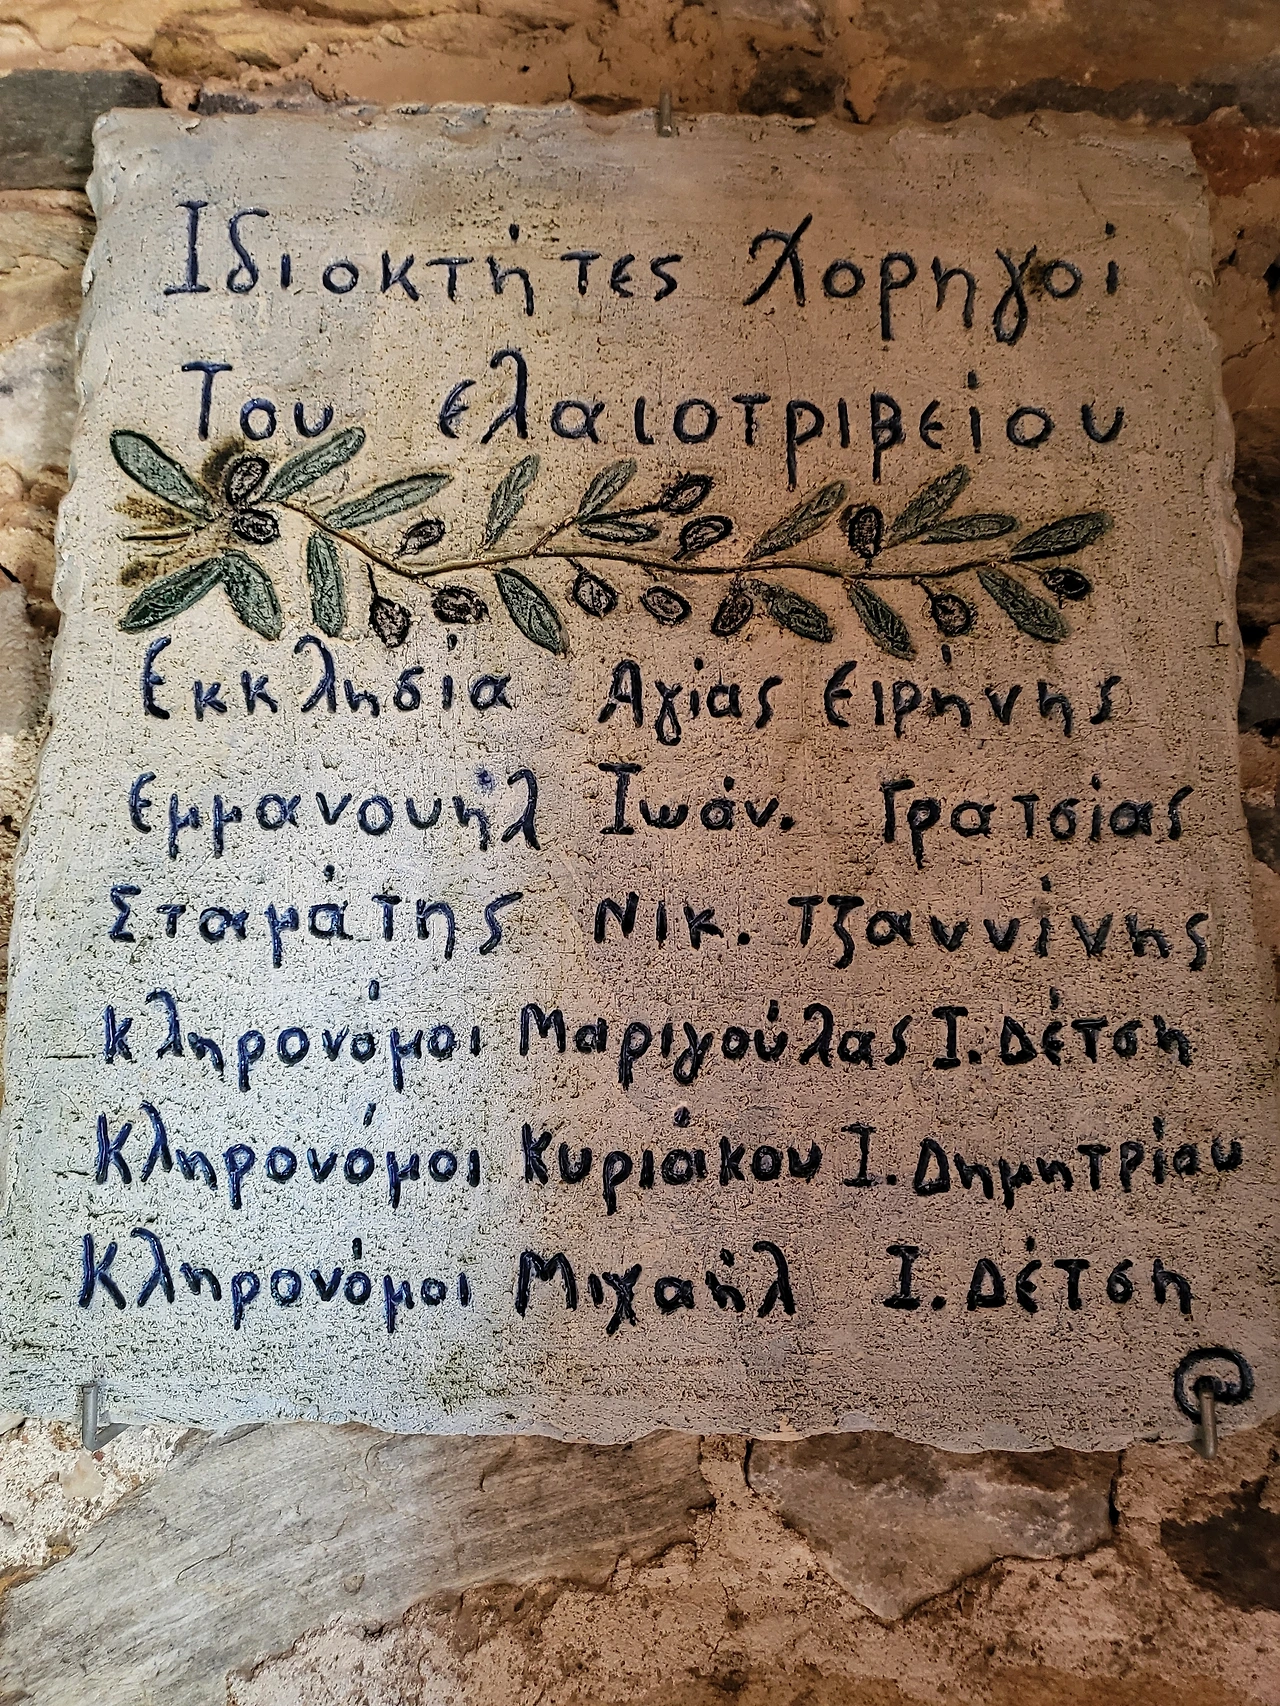 Ιδιοκτήτες Χορηγοί
Του ελαιοτριβείου
Εκκλησία Αγίας Ειρήνης
Εμμανουήλ Ιωάν. Γρατσίας
Σταμάτης Νικ. Τζαννίνης
Κληρονόμοι Μαριγούλας Ι. Δέτση
Κληρονόμοι Κυριάκου Ι. Δημητρίου
Κληρονόμοι Μιχαήλ Ι. Δέτση